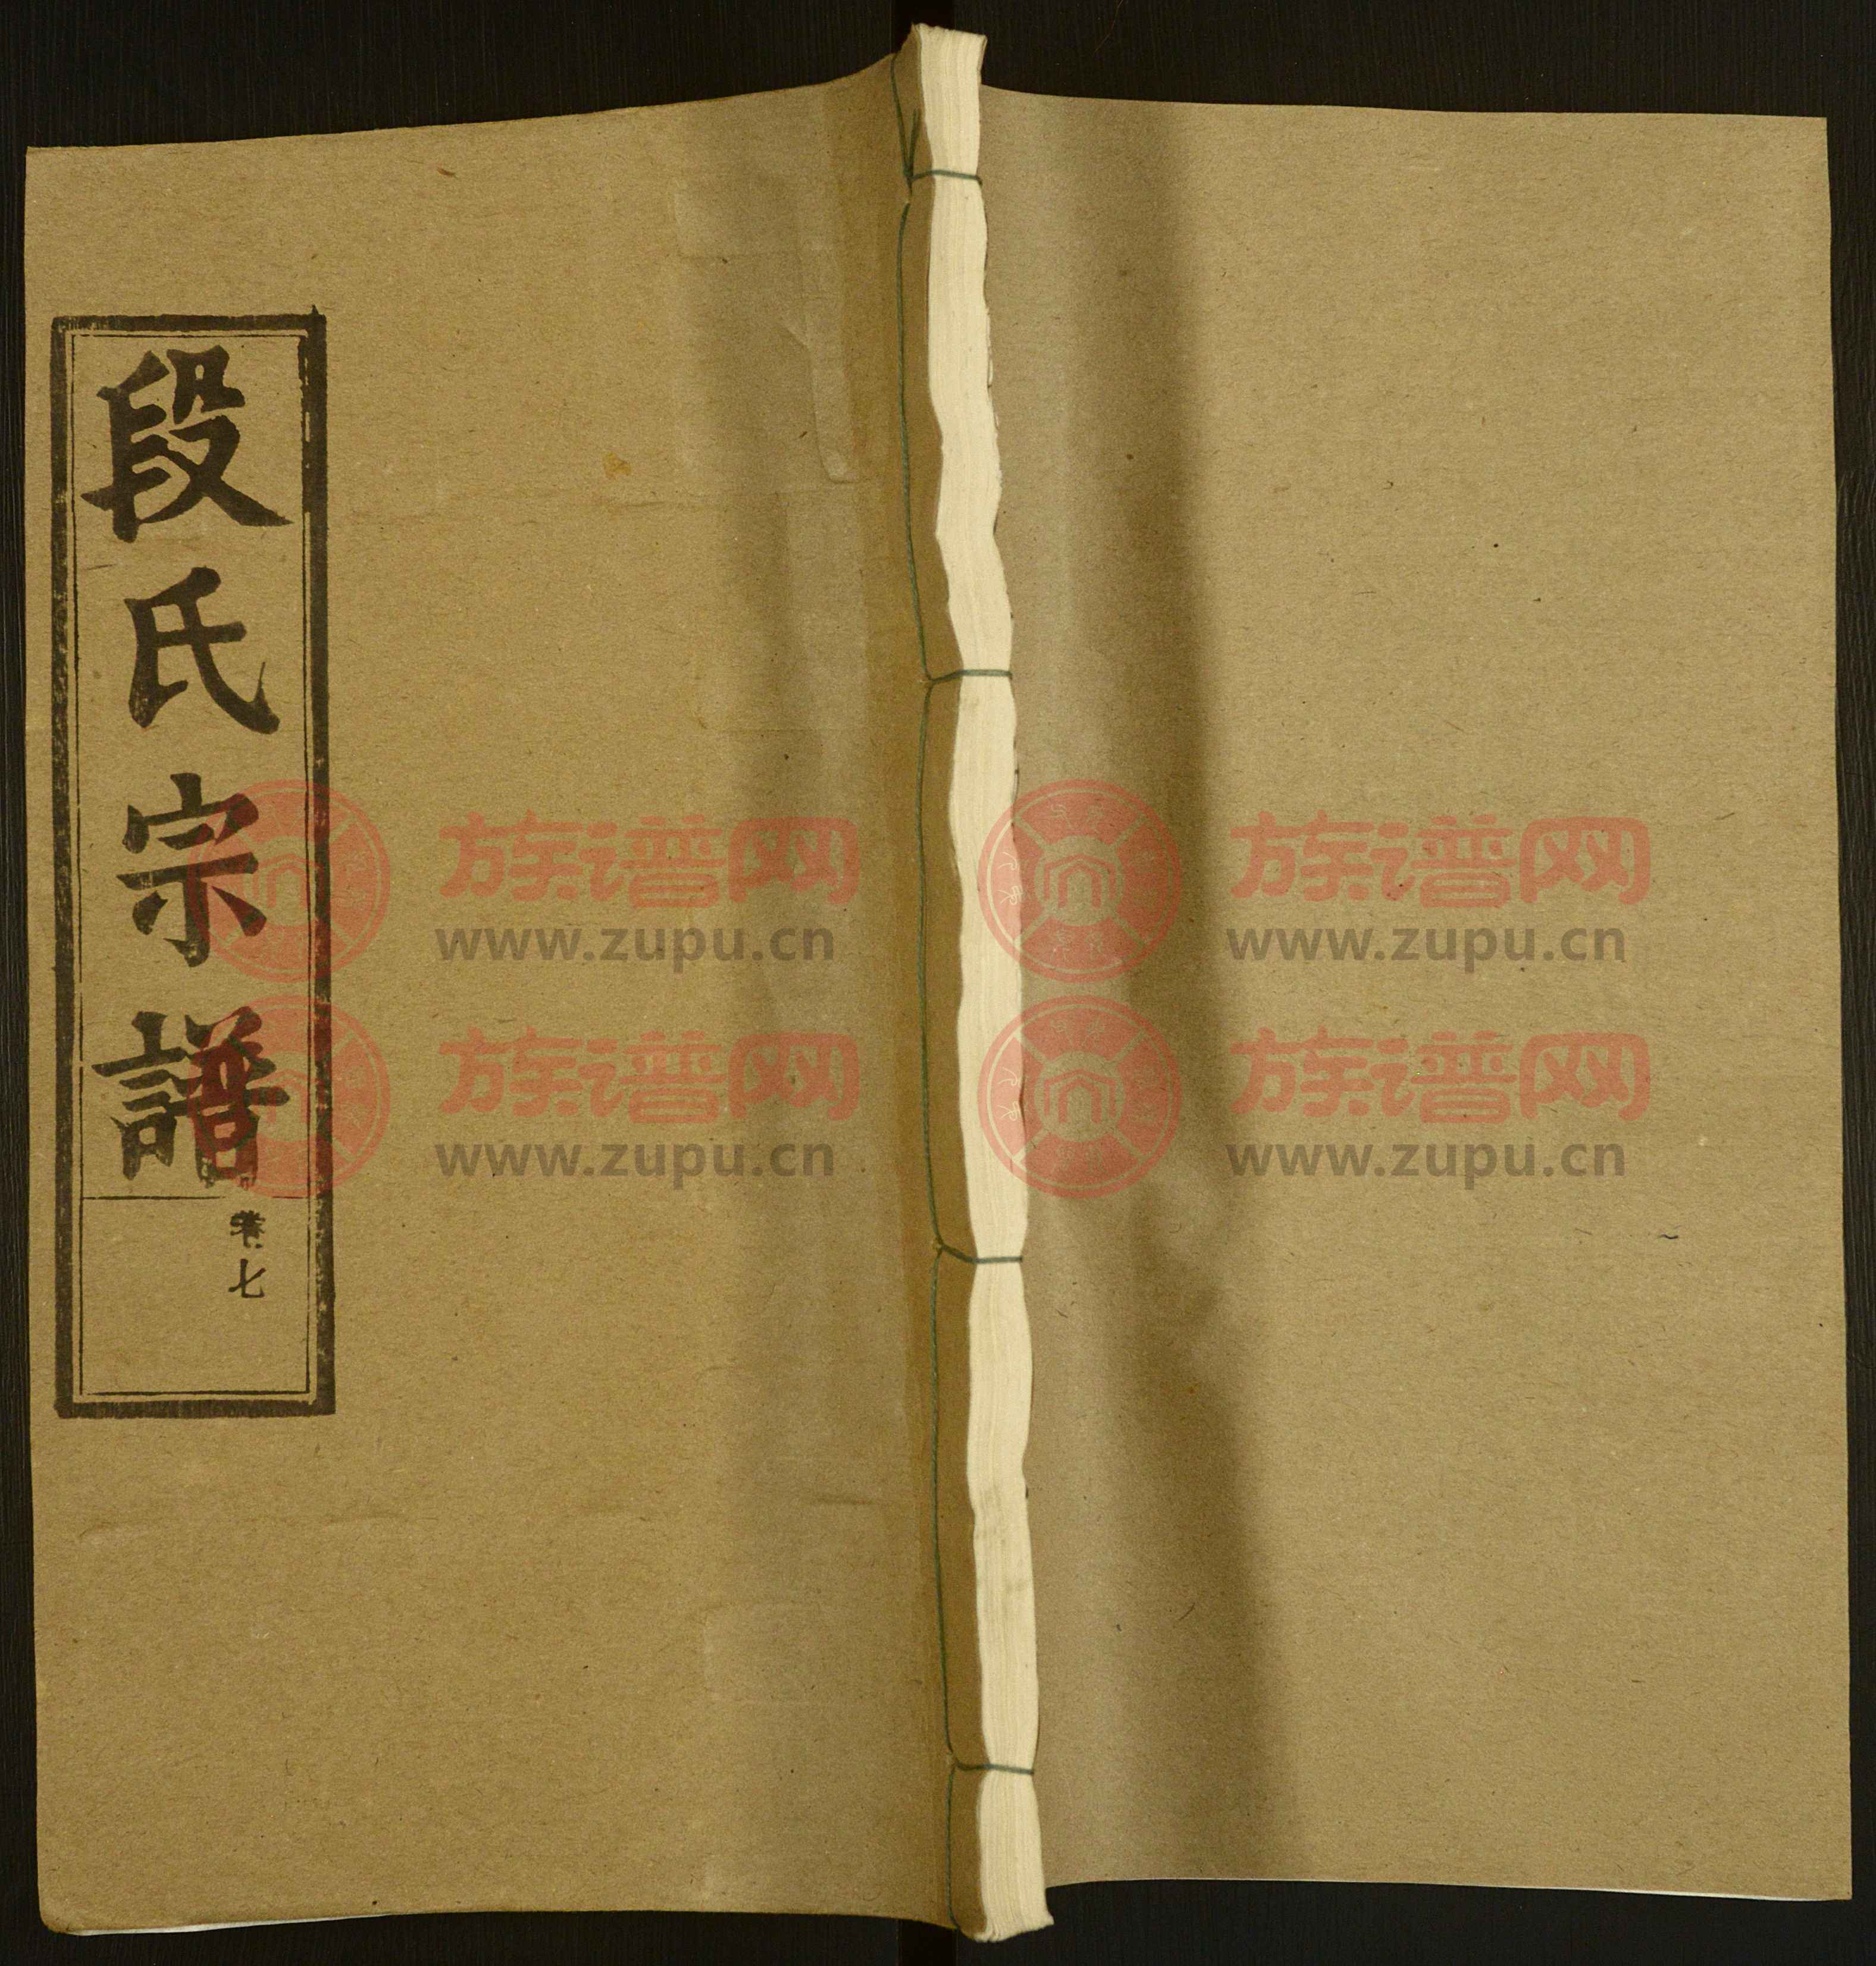 段氏宗譜
卷七
族谱网
www.zupu.cn
族谱网
www.zupu.cn
族谱网
www.zupu.cn
族谱网
www.zupu.cn